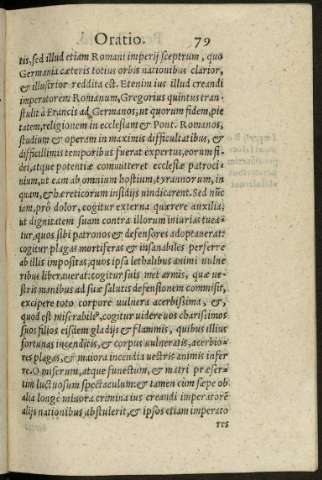 Oratio. 79
tis, sed illud etiam Romani imperij sceptrum, quo
Germania cæteris totius orbis nationibus clarior,
& illustrior reddita est. Etenim ius illud creandi
imperatorem Romanum, Gregorius quintus tran-
stulit à Francis ad Germanos, ut quorum fidem, pie
tatem, religionem in ecclesiam & Pont. Romanos,
studium & operam in maximis difficultatibus, &
difficillimis temporibus fuerat expertus, eorum fi-
dei, atque potentiæ committeret ecclesiæ patroci-
nium, ut eam ab omnium hostium, tyrannorum, in
quam, & hæreticorum insidijs uindicarent. Sed nũc
iam, prò dolor, cogitur externa quærere auxilia,
ut dignitatem suam contra illorum iniurias tuea-
tur, quos sibi patronos & defensores adoptauerat:
cogitur plagas mortiferas & insanabiles perferre
ab illis impositas, quos ipsa lethalibus animi uulne
ribus liberauerat: cogitur suis met armis, quæ ue-
stris manibus ad suæ salutis defensionem commisit,
excipere toto corpore uulnera acerbissima, &,
quod est miserabile, cogitur uidere uos charissimos
suos filios eisdem gladijs & flammis, quibus illius
fortunas incenditis, & corpus uulneratis, acerbio-
res plagas, & maiora incendia uestris animis infer
re. O miserum, atque funestum, & matri præser-
tim luctuosum spectaculum: & tamen cùm sæpe ob
alia longè minora crimina ius creandi imperatorẽ
alijs nationibus abstulerit, & ipsos etiam imperato
res